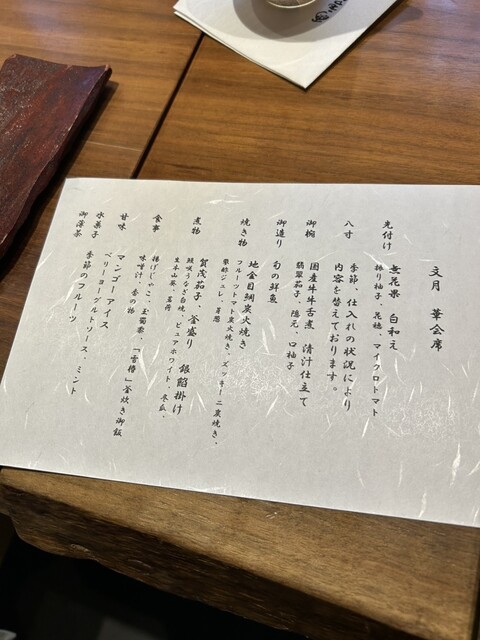 文月 華会席
先付け
無花果 白和え
振り柚子、花穂、マイクロトマト
八寸
季節、仕入れの状況により
内容を替えております。
御椀
国産牛牛舌煮 清汁仕立て
翡翠茄子、隠元、口柚子
御造り
旬の鮮魚
焼き物
地金目鯛炭火焼き
フルーツトマト炭火焼き、ズッキーニ炭焼き、
ジュレ、
煮物
賀茂茄子、釜盛り 銀餡掛け
鰻咲うなぎ白焼、ピュアホワイト、冬瓜、
生木山葵、
食事
揚げじゃこ、玉蜀黍、「雪椿」釜炊き御飯
味噌汁 香の物
甘味
マンゴーアイス
ベリーヨーグルトソース、ミント
水菓子
季節のフルーツ
御薄茶